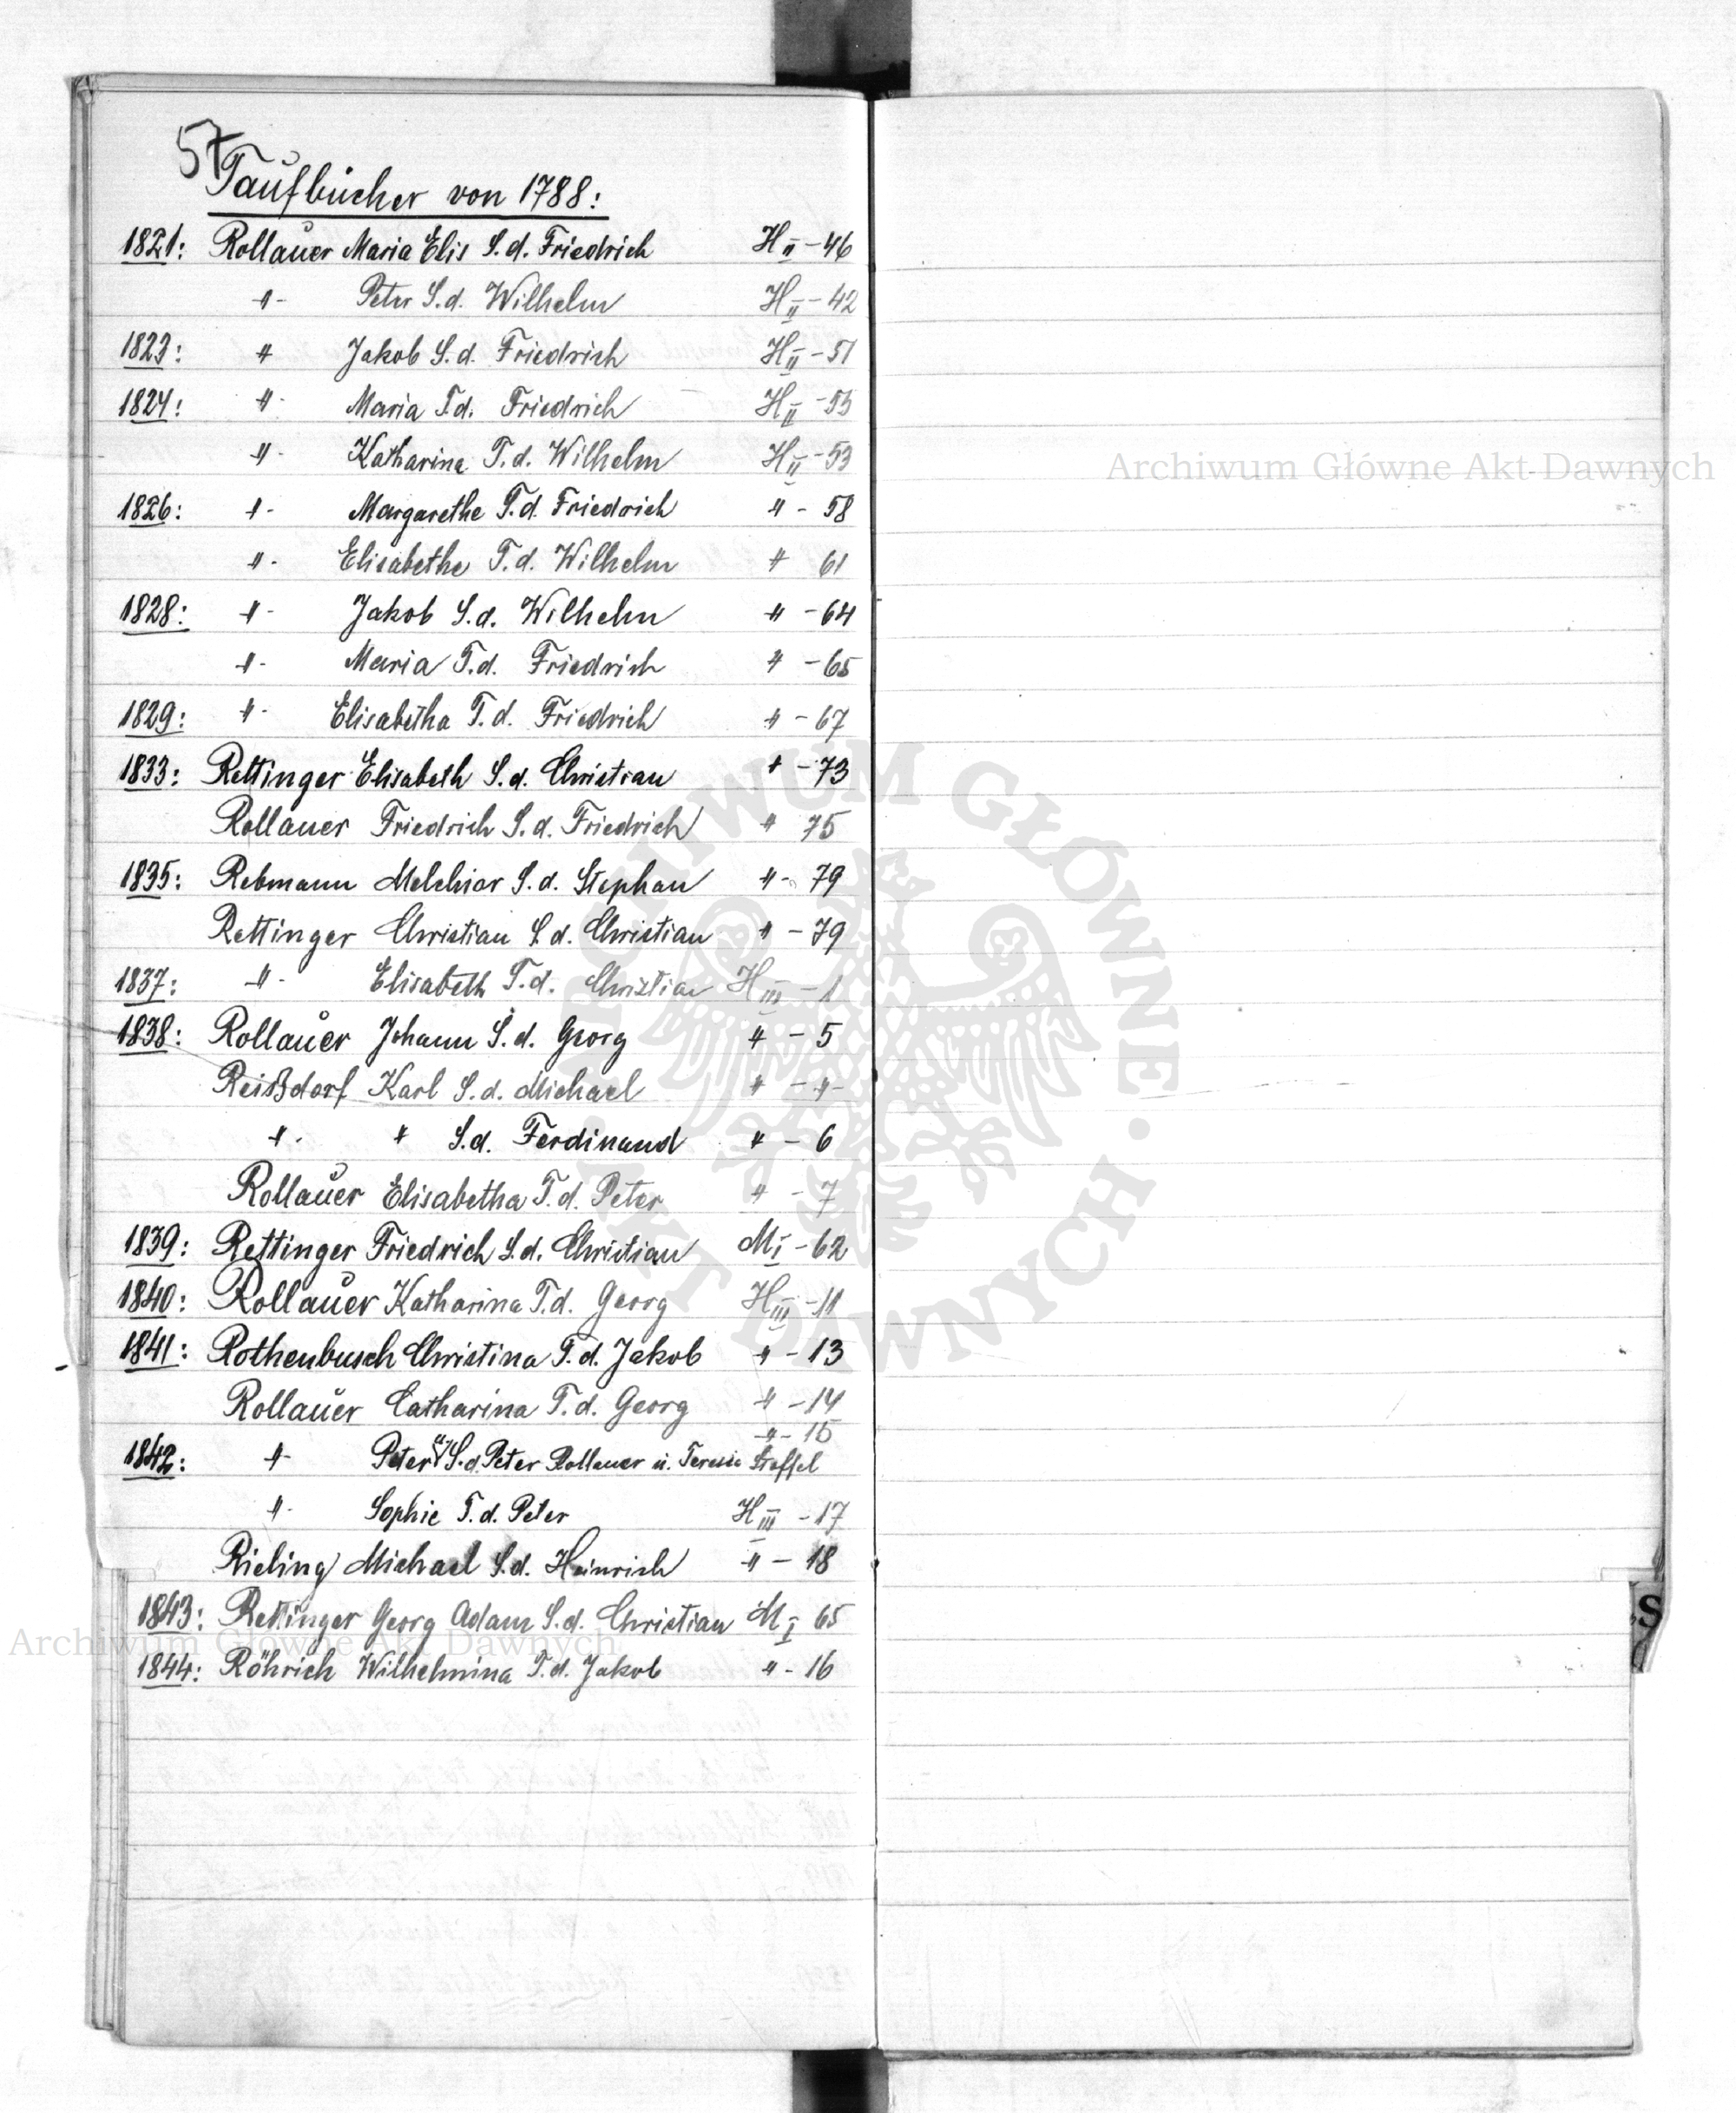 57
Taufbücher von 1788:
1821: Rollauer Maria Elis S. d. Friedrich H II - 46
-"- Peter S. d. Wilhelm H II - 42
1823: " Jakob S. d. Friedrich H II - 51
1824: "- Maria T. d. Friedrich H II - 53
"- Katharina T. d. Wilhelm H II - 53
1826: "- Margarethe T. d. Friedrich " - 58
"- Elisabethe T. d. Wilhelm " 61
1828: "- Jakob S. d. Wilhelm " - 64
"- Maria T. d. Friedrich " - 65
1829: "- Elisabetha T. d. Friedrich " - 67
1833: Rettinger Elisabeth S. d. Christian " - 73
Rollauer Friedrich S. d. Friedrich " 75
1835: Rebmann Melchior S. d. Stephan " - 79
Rettinger Christian S. d. Christian " - 79
1837: -"- Elisabeth T. d. Christian H III - 1
1838: Rollauer Johann S. d. Georg " - 5
Reißdorf Karl S. d. Michael " - "-
"- " S. d. Ferdinand " - 6
Rollauer Elisabetha T. d. Peter " - 7
1839: Rettinger Friedrich S. d. Christian M I - 62
1840: Rollauer Katharina T. d. Georg H III - 11
1841: Rothenbusch Christina T. d. Jakob " - 13
Rollauer Catharina T. d. Georg " - 14
"- 15
1842: "- Peter S. d. Peter Rollauer u. Teresie Steffel
"- Sophie T. d. Peter H III - 17
Rieling Michael S. d. Heinrich " - 18
1843: Rettinger Georg Adam S. d. Christian M I 65
1844: Röhrich Wilhelmina T. d. Jakob " - 16
S
Archiwum Główne Akt Dawnych
Archiwum Główne Akt Dawnych
ARCHIWUM GŁÓWNE · AKT DAWNYCH ·